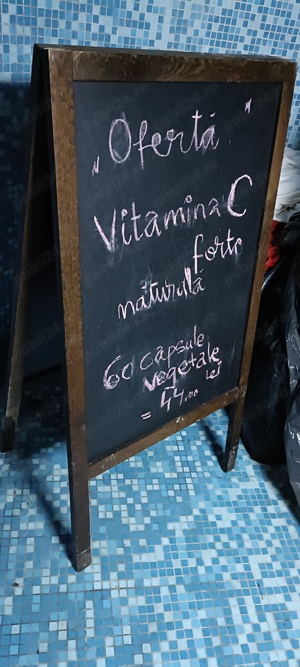 „Ofertă"
Vitamina C
forte
naturală
60 capsule
vegetale
= 44.00 lei